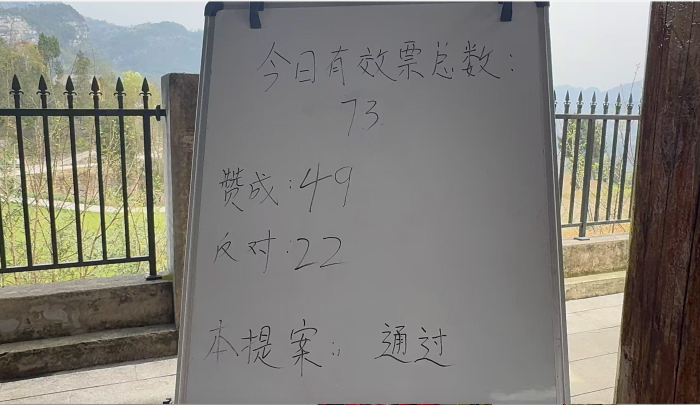 今日有效票总数:
73
赞成:49
反对:22
本提案: 通过